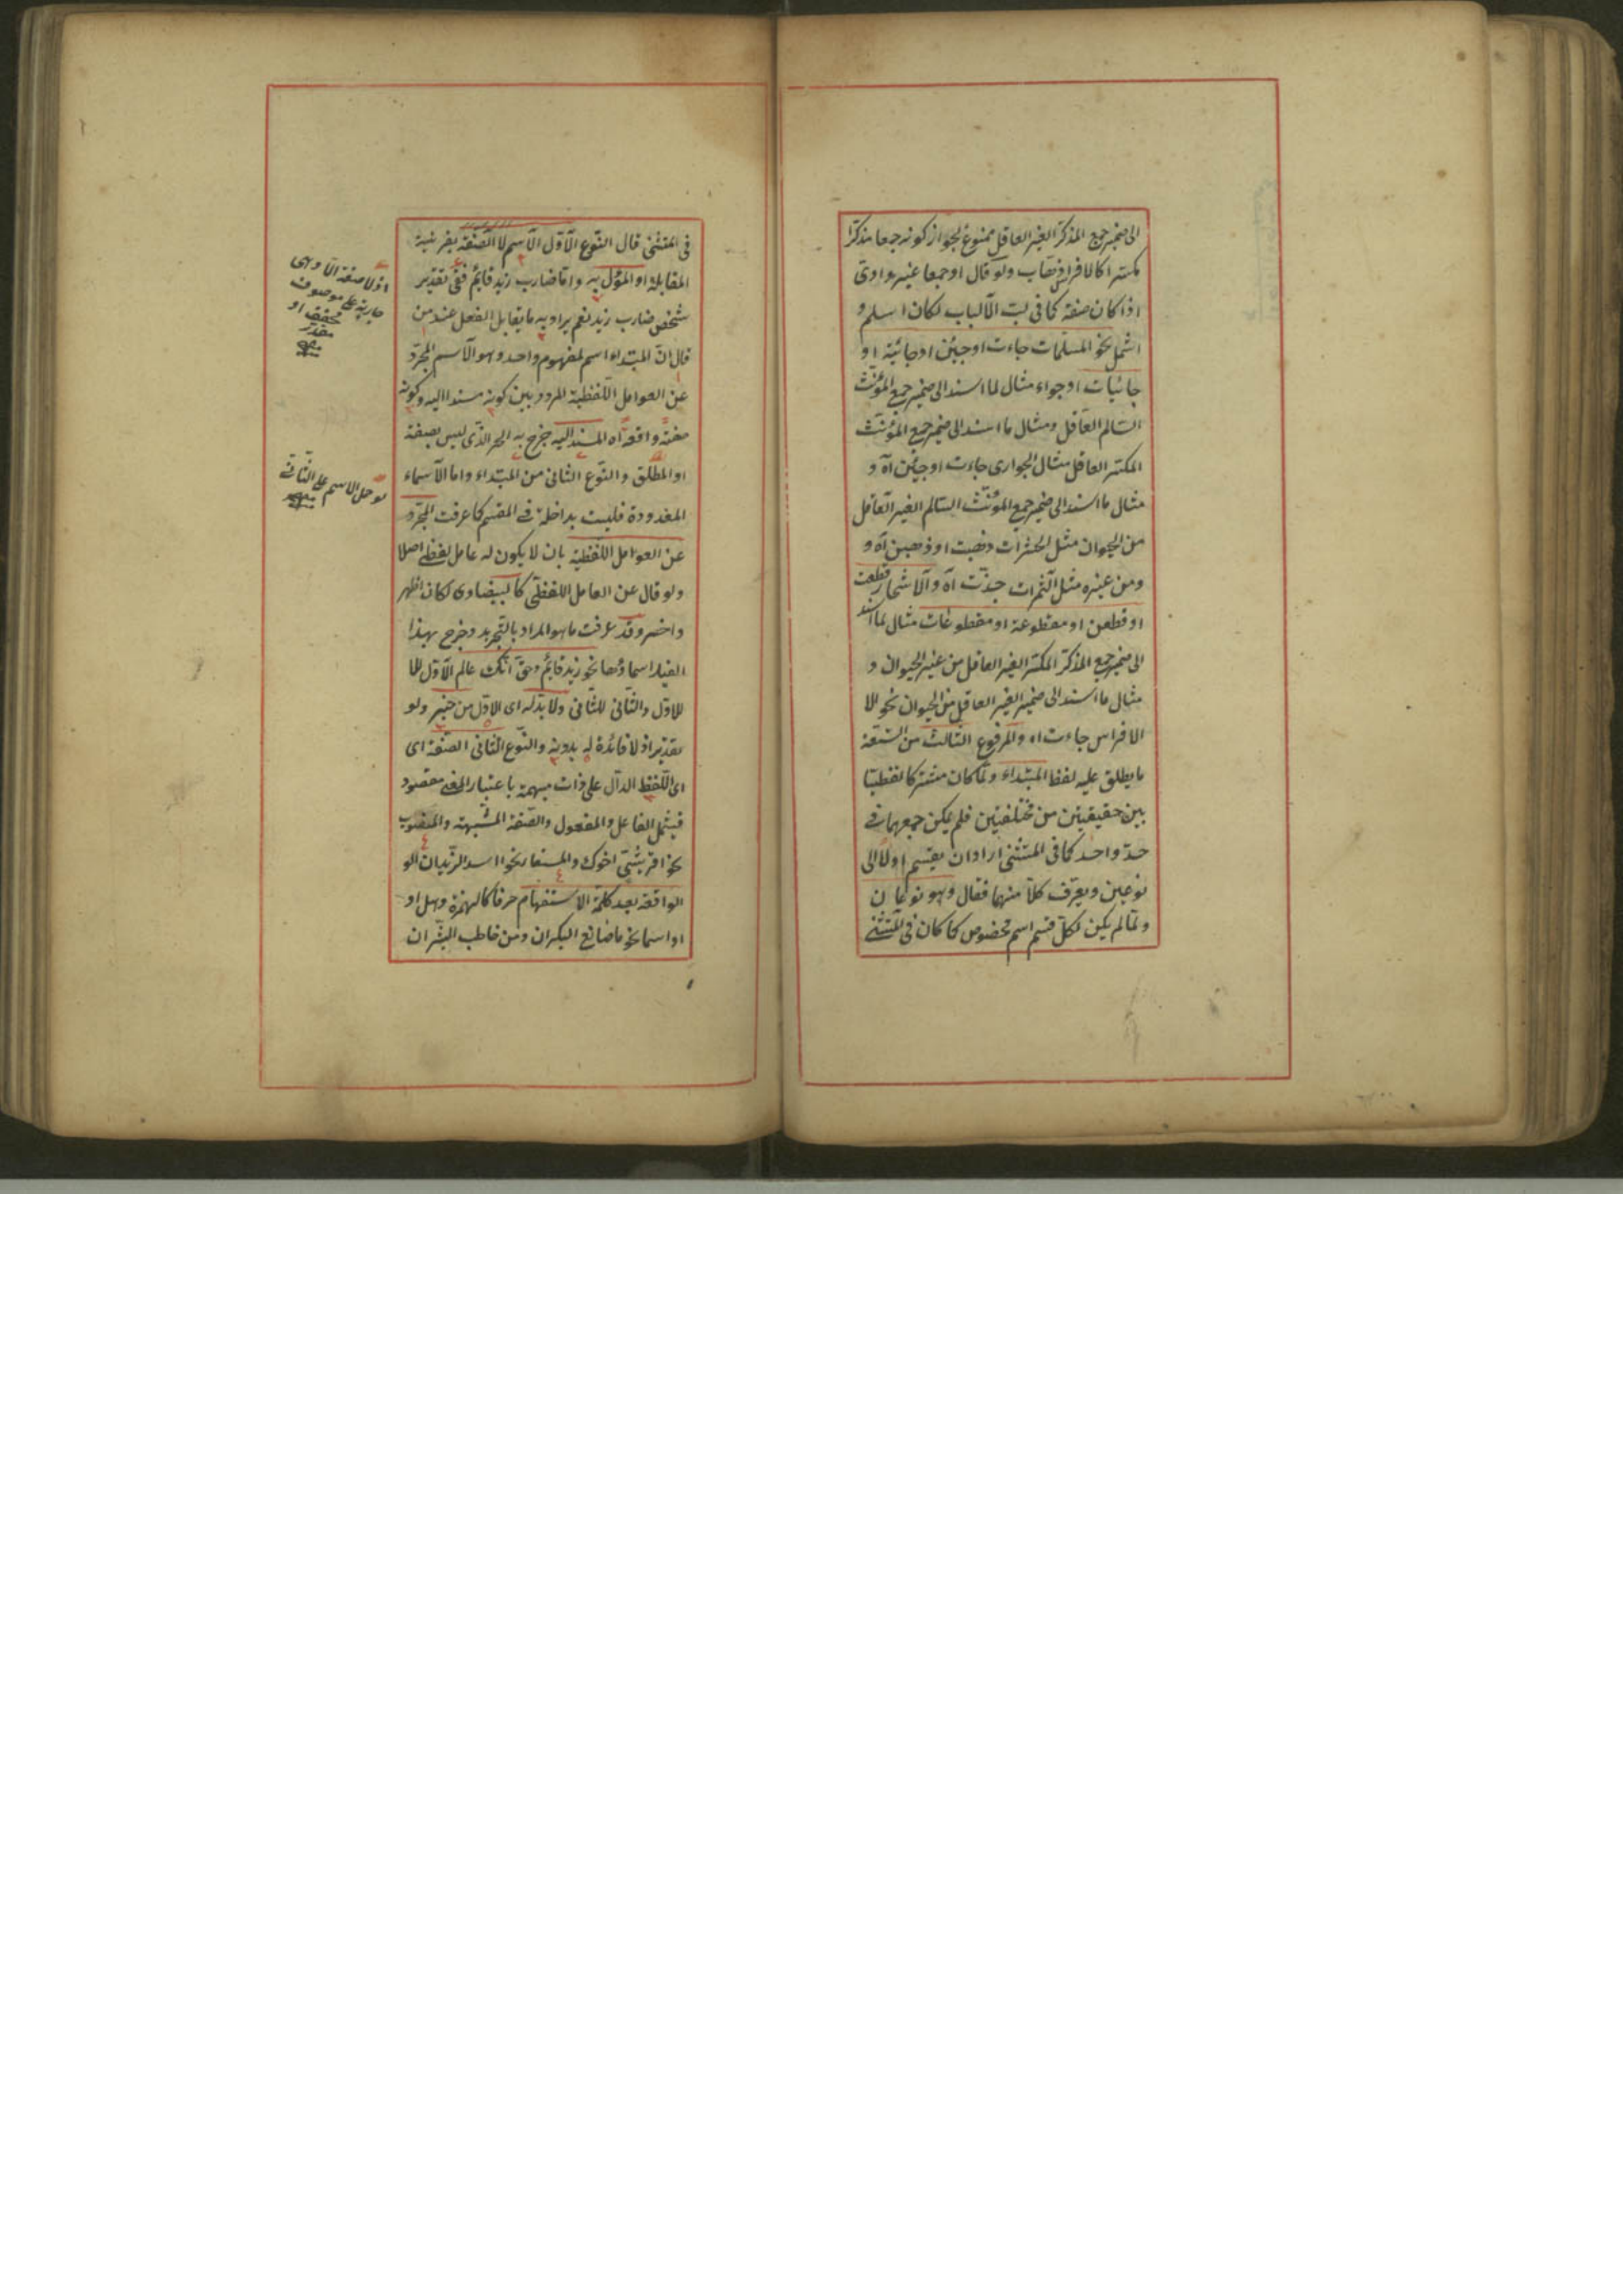 الى ضمير جمع المذكر الغير العاقل ممنوع لجواز كونه جمعا مذكرا
مكسرا كالافراس ولو قال او جمعا غير واوى
اذا كان صفة كما فى لب الالباب لكان اسلم و
اشمل نحو المسلمات جاءت او جئن او جائية او
جائيات او جواء مثال لما اسند الى ضمير جمع المؤنث
السالم العاقل ومثال ما اسند الى ضمير جمع المؤنث
المكسر العاقل مثال الجوارى جاءت او جئن آه و
مثال ما اسند الى ضمير جمع المؤنث السالم الغير العاقل
من الحيوان مثل الحشرات ذهبت او ذهبن آه و
ومن غيره مثل الثمرات جذت آه والاشجار قطعت
او قطعن او مقطوعة او مقطوعات مثال لما اسند
الى ضمير جمع المذكر المكسر الغير العاقل من غير الحيوان و
مثال ما اسند الى ضمير الغير العاقل من الحيوان نحو الا
الافراس جاءت اه والمرفوع الثالث من التسعة
ما يطلق عليه لفظ المبتداء ولما كان مشتركا لفظيا
بين حقيقيتين من مختلفتين فلم يمكن جمعهما فى
حد واحد كما فى المستثنى اراد ان يقسم اولا الى
نوعين ويعرف كلا منهما فقال وهو نوعان
ولما لم يكن لكل قسم اسم مخصوص كما كان فى المستثنى
فى المستثنى قال النوع الاول الاسم لا الصفة بقرينة
المقابلة او المؤل به واما ضارب زيد قائم ففى تقدير
شخص ضارب زيد نعم يراد به ما يقابل الفعل عند من
قال ان المبتداء اسم لمفهوم واحد وهو الاسم المجرد
عن العوامل اللفظية المردد بين كونه مسندا اليه وكونه
صفة واقعة آه المسند اليه خرج به الخبر الذى ليس بصفة
او المطلق والنوع الثانى من المبتداء واما الاسماء
المعدودة فليست بداخلة فى المقسم كما عرفت المجرد
عن العوامل اللفظية بان لا يكون له عامل لفظى اصلا
ولو قال عن العامل اللفظى كالبيضاوى لكان اظهر
واخصر وقد عرفت ما هو المراد بالتجريد وخرج بهذا
القيد اسما وهما نحو زيد قائم وحق انك عالم الاول لما
للاول والثانى للثانى ولا بد له اى الاول من خبر ولو
بتقدير اذ لا فائدة له بدونه والنوع الثانى الصفة اى
اى اللفظ الدال على ذات مبهمة باعتبار المعنى مقصود
فيشمل الفاعل والمفعول والصفة المشبهة والمنسوب
نحو اقريشى اخوك والمستعار نحو ااسد الزيدان الو
الواقعة بعد كلمة الاستفهام حرفا كالهمزة وهل او
او اسما نحو ما صانع البكران ومن خاطب البشران
اذ لا صفة الا وهى
جارية على موصوف
محقق او
مقدر
منه
لو حمل الاسم على الثانى
منه